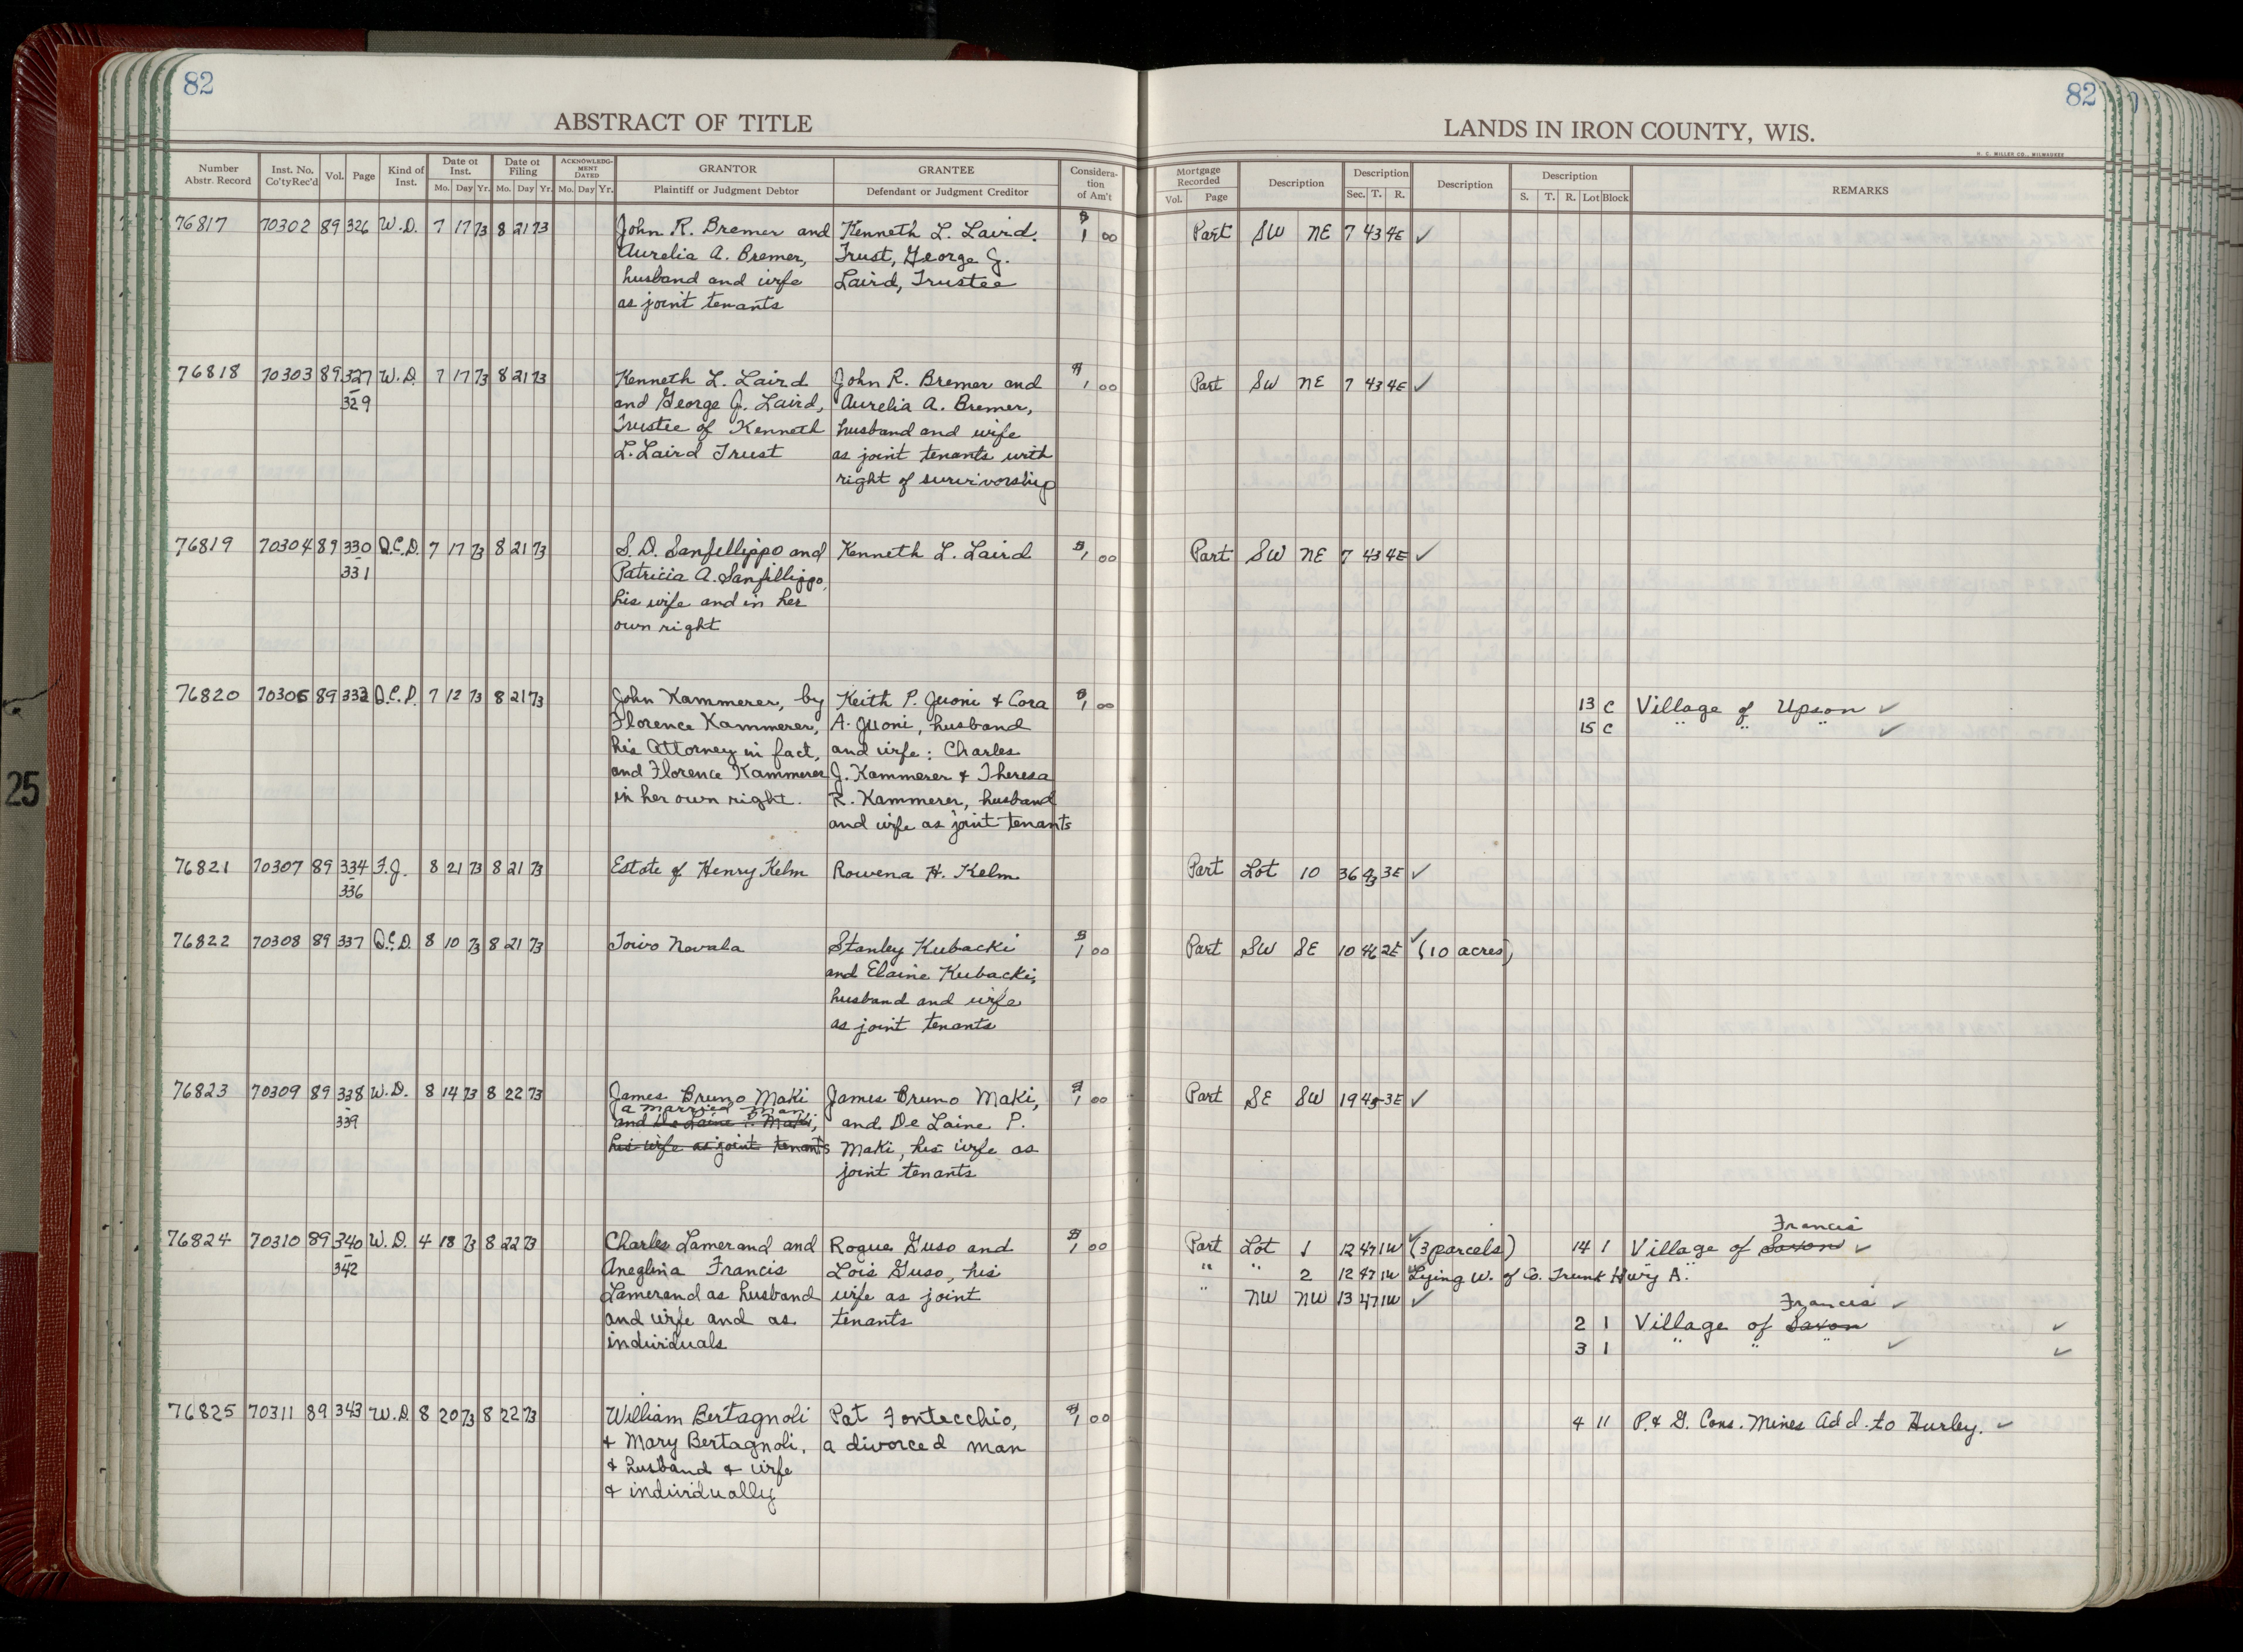 82
82
ABSTRACT OF TITLE
LANDS IN IRON COUNTY, WIS.
H. C. MILLER CO., MILWAUKEE
Number Abstr. Record | Inst. No. Co'ty Rec'd | Vol. | Page | Kind of Inst. | Date of Inst. Mo. Day Yr. | Date of Filing Mo. Day Yr. | ACKNOWLEDGMENT DATED Mo. Day Yr. | GRANTOR Plaintiff or Judgment Debtor | GRANTEE Defendant or Judgment Creditor | Consideration of Am't | Mortgage Recorded Vol. Page | Description | Description Sec. T. R. | Description | Description S. T. R. Lot Block | REMARKS
76817 70302 89 326 W.D. 7 17 73 8 21 73 John R. Bremer and Kenneth L. Laird $1 00 Part SW NE 7 43 4E ✓
Aurelia A. Bremer, Trust, George J.
husband and wife Laird, Trustee
as joint tenants
76818 70303 89 327 W.D. 7 17 73 8 21 73 Kenneth L. Laird John R. Bremer and $1 00 Part SW NE 7 43 4E ✓
- 329 and George J. Laird, Aurelia A. Bremer,
Trustee of Kenneth husband and wife
L. Laird Trust as joint tenants with
right of survivorship
76819 70304 89 330 Q.C.D. 7 17 73 8 21 73 S. D. Sanfillippo and Kenneth L. Laird $1 00 Part SW NE 7 43 4E ✓
- 331 Patricia A. Sanfillippo,
his wife and in her
own right
76820 70306 89 333 Q.C.D. 7 12 73 8 21 73 John Kammerer, by Keith P. Juoni & Cora $1 00 13 C Village of Upson ✓
Florence Kammerer, A. Juoni, husband 15 C " " " ✓
his Attorney in fact, and wife: Charles
and Florence Kammerer J. Kammerer & Theresa
in her own right. R. Kammerer, husband
and wife as joint tenants
76821 70307 89 334 F.J. 8 21 73 8 21 73 Estate of Henry Kelm Rowena H. Kelm Part Lot 10 36 43 3E ✓
- 336
76822 70308 89 337 Q.C.D. 8 10 73 8 21 73 Toivo Nevala Stanley Kubacki $1 00 Part SW SE 10 46 2E ✓ (10 acres)
and Elaine Kubacki,
husband and wife
as joint tenants
76823 70309 89 338 W.D. 8 14 73 8 22 73 James Bruno Maki James Bruno Maki, $1 00 Part SE SW 19 45 3E ✓
a married man
- 339 and De Laine P. Maki, and De Laine P.
his wife as joint tenants Maki, his wife as
joint tenants
Francis
76824 70310 89 340 W.D. 4 18 73 8 22 73 Charles Lamerand and Rogue Guso and $1 00 Part Lot 1 12 47 1W ✓ (3 parcels) 14 1 Village of Saxon ✓
- 342 Aneglina Francis Lois Guso, his " " 2 12 47 1W Lying W. of Co. Trunk Hwy A.
Lamerand as husband wife as joint " NW NW 13 47 1W ✓ Francis ✓
and wife and as tenants 2 1 Village of Saxon ✓
individuals 3 1 " " " ✓ ✓
76825 70311 89 343 W.D 8 20 73 8 22 73 William Bertagnoli Pat Fontecchio, $1 00 4 11 P. & G. Cons. Mines Add. to Hurley. ✓
& Mary Bertagnoli, a divorced man
& husband & wife
& individually
25